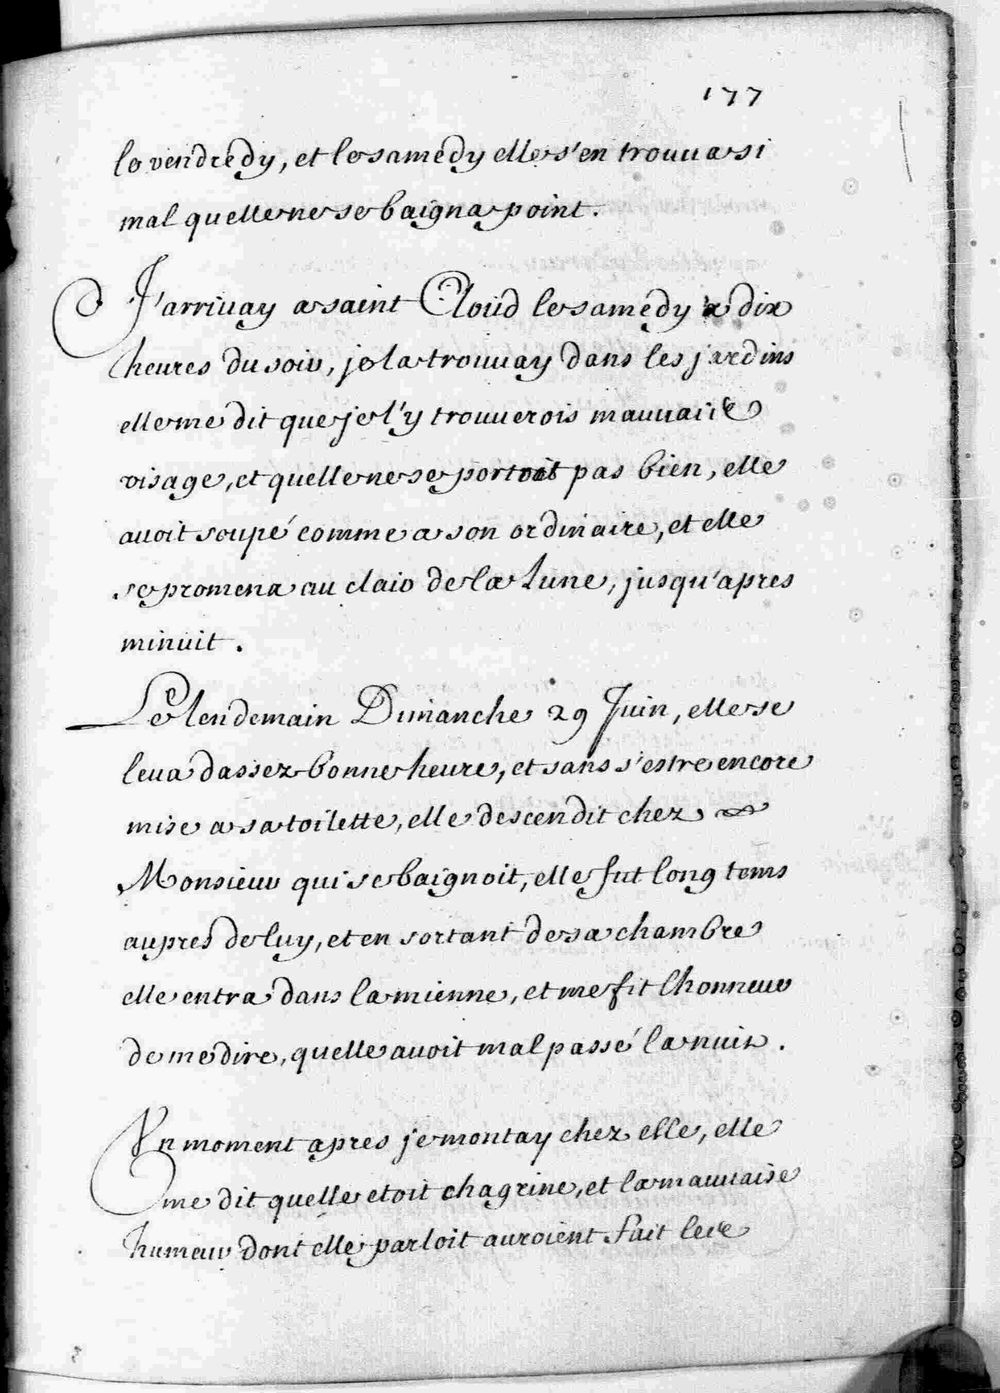 177
le vendredy, et le samedy elle s'en trouua si
mal quelle ne se baigna point.
J'arriuay a saint Cloüd le samedy a dix
heures du soir, je la trouuay dans les jardins
elle me dit que je l'y trouuerois mauuaise
visage, et quelle ne se portoit pas bien, elle
auoit soupé comme a son ordinaire, et elle
se promena au clair de la Lune, jusqu'apres
minuit.
Le lendemain Dimanche 29 Juin, elle se
leua dassez bonne heure, et sans s'estre encore
mise a sa toilette, elle descendit chez
Monsieur qui se baignoit, elle fut long tems
aupres de luy, et en sortant de sa chambre
elle entra dans la mienne, et me fit lhonneur
de me dire, quelle auoit mal passé la nuit.
Vn moment apres je montay chez elle, elle
me dit quelle etoit chagrine, et la mauuaise
humeur dont elle parloit auroient fait les